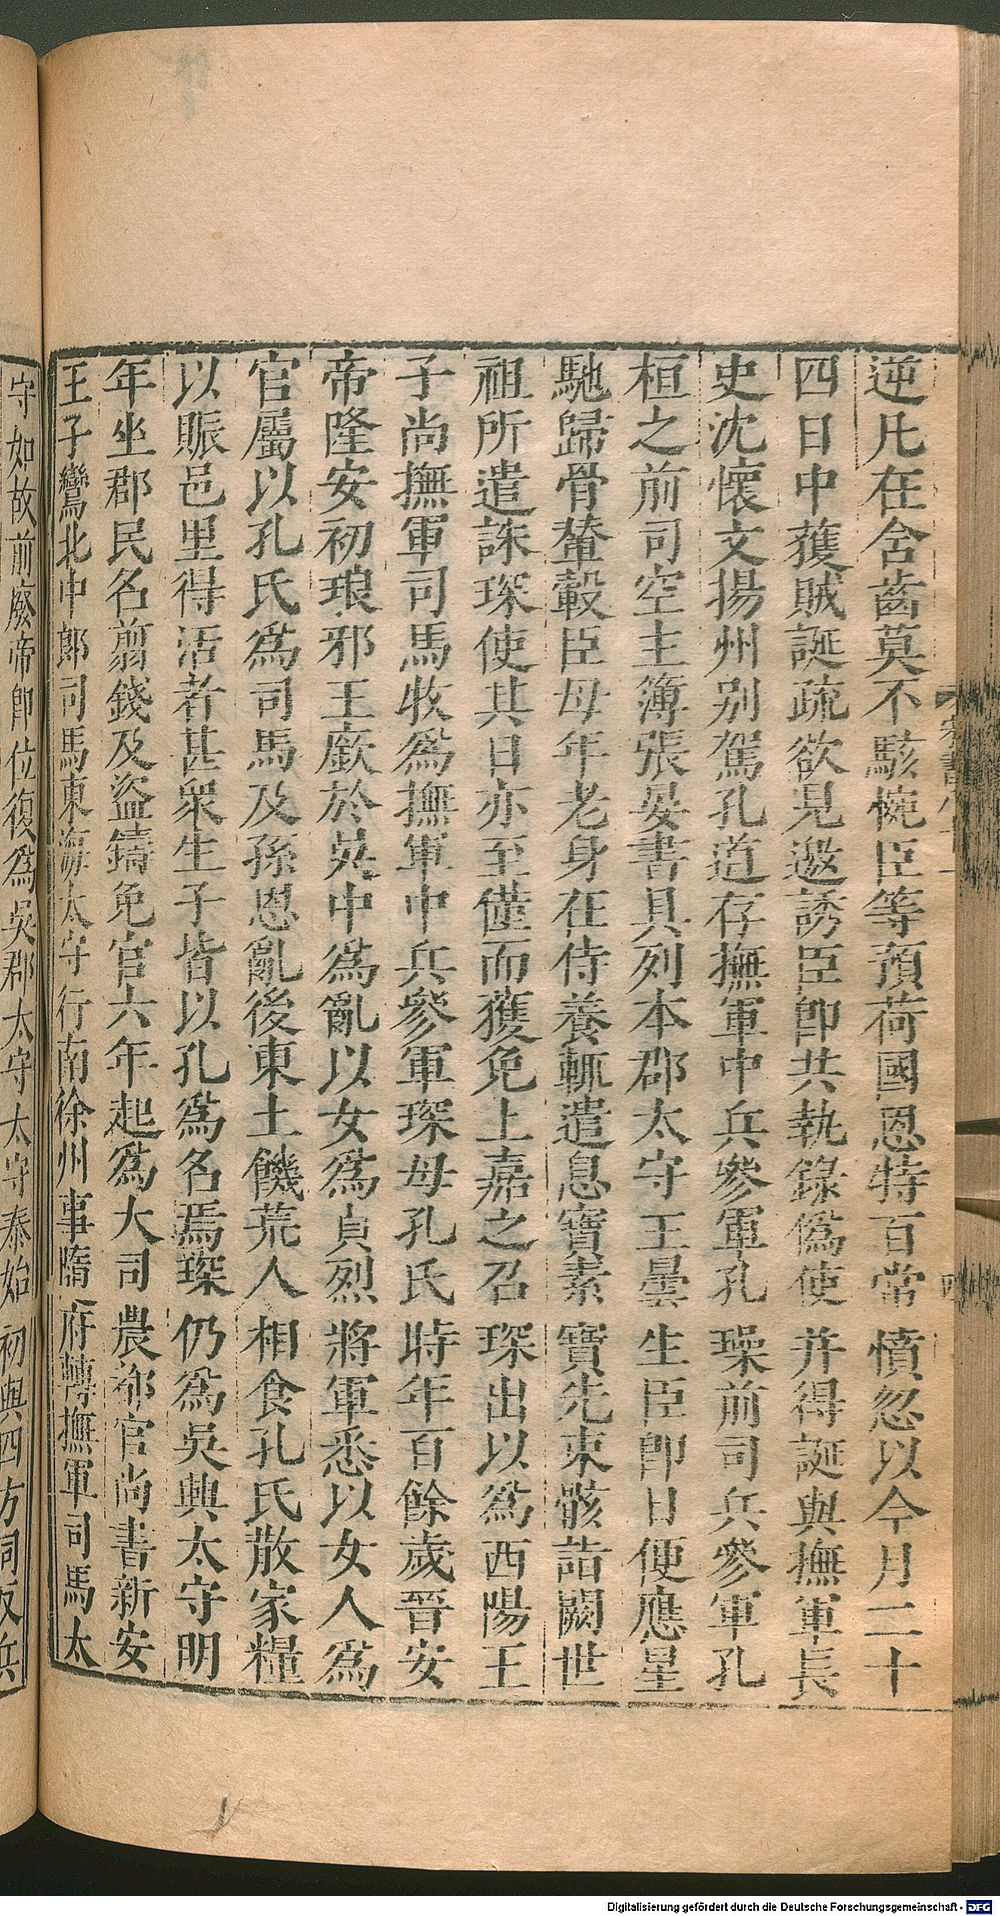 逆凡在含齒莫不駭惋臣等預荷國恩特百常憤忽以今月二十
四日中獲賊誕疏欲見邀誘臣即共執錄僞使并得誕與撫軍長
史沈懷文揚州别駕孔道存撫軍中兵參軍孔璪前司兵參軍孔
桓之前司空主簿張晏書具列本郡太守王曇生臣即日便應星
馳歸骨輦轂臣母年老身在侍養輒遣息寶素寶先束骸詣闕世
祖所遣誅琛使其日亦至僅而獲免上嘉之召琛出以爲西陽王
子尚撫軍司馬牧爲撫軍中兵參軍琛母孔氏時年百餘歲晉安
帝隆安初琅邪王廞於吳中爲亂以女爲貞烈將軍悉以女人爲
官屬以孔氏爲司馬及孫恩亂後東土饑荒人相食孔氏散家糧
以賑邑里得活者甚衆生子皆以孔爲名焉琛仍爲吳興太守明
年坐郡民名翦錢及盜鑄免官六年起爲大司農都官尚書新安
王子鸞北中郎司馬東海太守行南徐州事隨府轉撫軍司馬太
守如故前廢帝即位復爲吳郡太守太守泰始初與四方同反兵
Digitalisierung gefördert durch die Deutsche Forschungsgemeinschaft - DFG